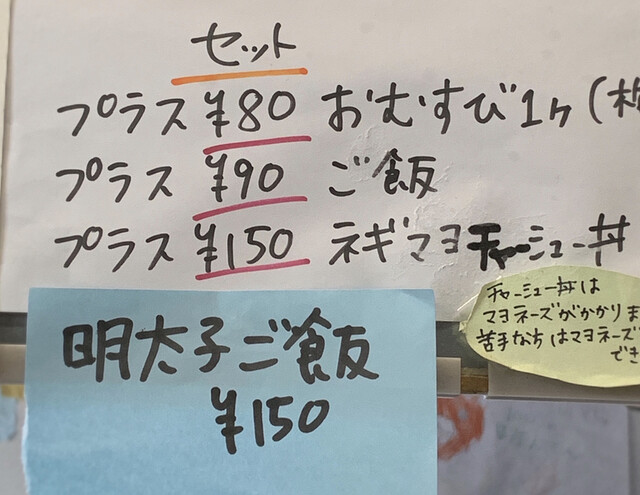 セット
プラス ¥80 おむすび1ヶ(
プラス ¥90 ご飯
プラス ¥150 ネギマヨチャーシュー丼
チャーシュー丼は
マヨネーズがかかりま
苦手な方はマヨネーズ
でき
明太子ご飯
¥150